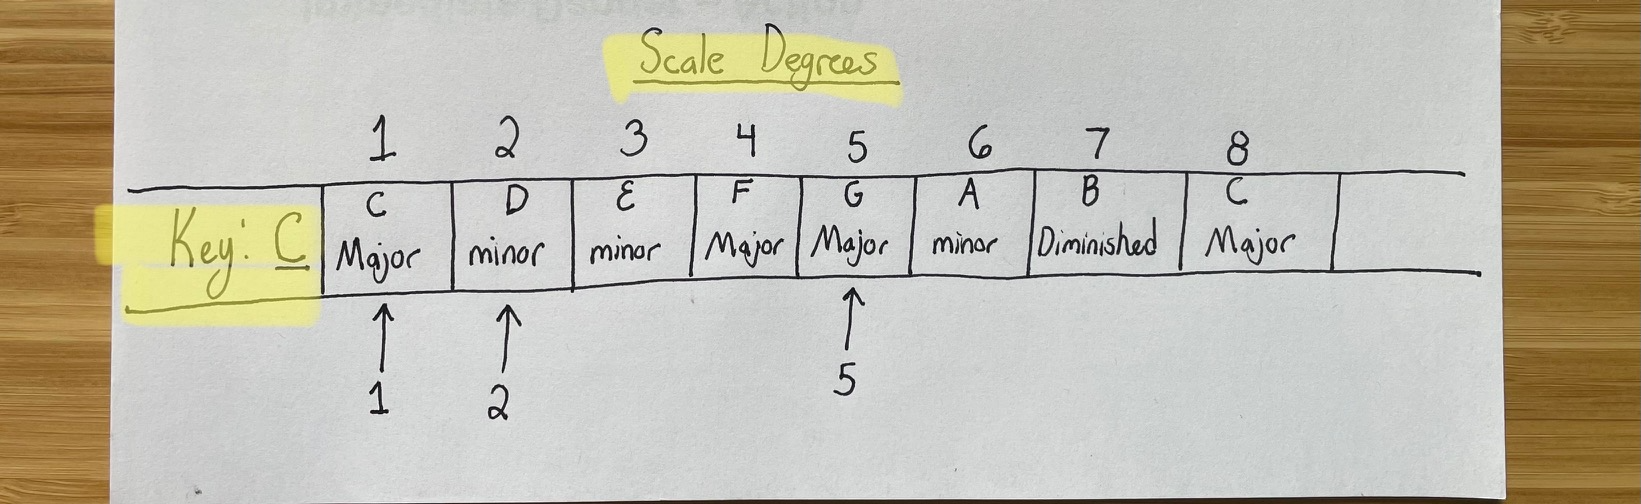 Scale Degrees
1 2 3 4 5 6 7 8
Key: C C D E F G A B C
Major minor minor Major Major minor Diminished Major
1 2 5